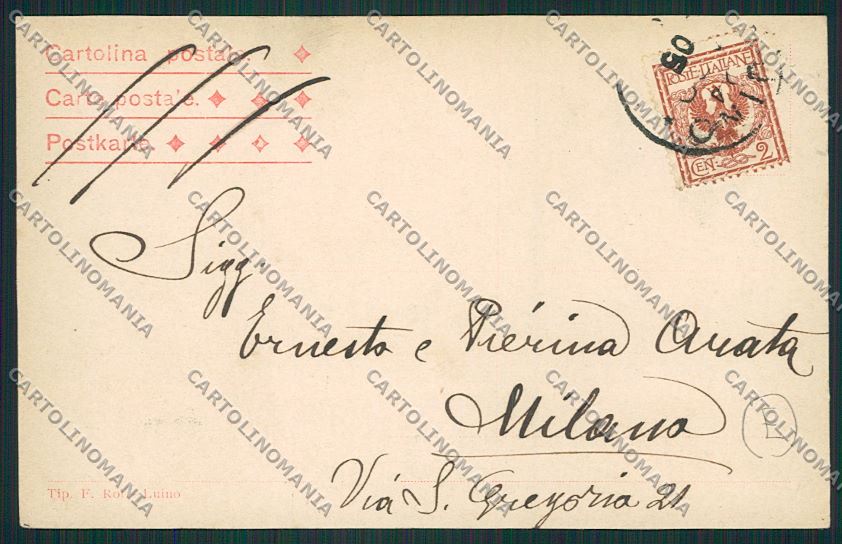 Cartolina postale.
Carte postale.
Postkarte.
05
POSTE ITALIANE
CEN. 2
Sigg.
Ernesto e Piérina Arata
Milano
Via S. Gregorio 21
Tip. F. Luino
CARTOLINOMANIA